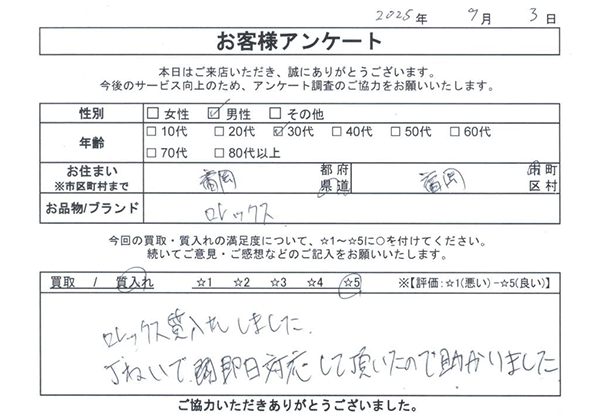 2025年 9月 3日
お客様アンケート
本日はご来店いただき、誠にありがとうございます。
今後のサービス向上のため、アンケート調査のご協力をお願いいたします。
性別 □女性 ☑男性 □その他
年齢 □10代 □20代 ☑30代 □40代 □50代 □60代
□70代 □80代以上
お住まい
※市区町村まで 福岡 都府県道 福岡 市町区村
お品物/ブランド ロレックス
今回の買取・質入れの満足度について、☆1~☆5に○を付けてください。
続いてご意見・ご感想などのご記入をお願いいたします。
買取 / 質入れ ☆1 ☆2 ☆3 ☆4 ☆5 ※【評価:☆1(悪い)-☆5(良い)】
ロレックス質入れしました.
丁ねいで、即日対応して頂いたので助かりました
ご協力いただきありがとうございました。